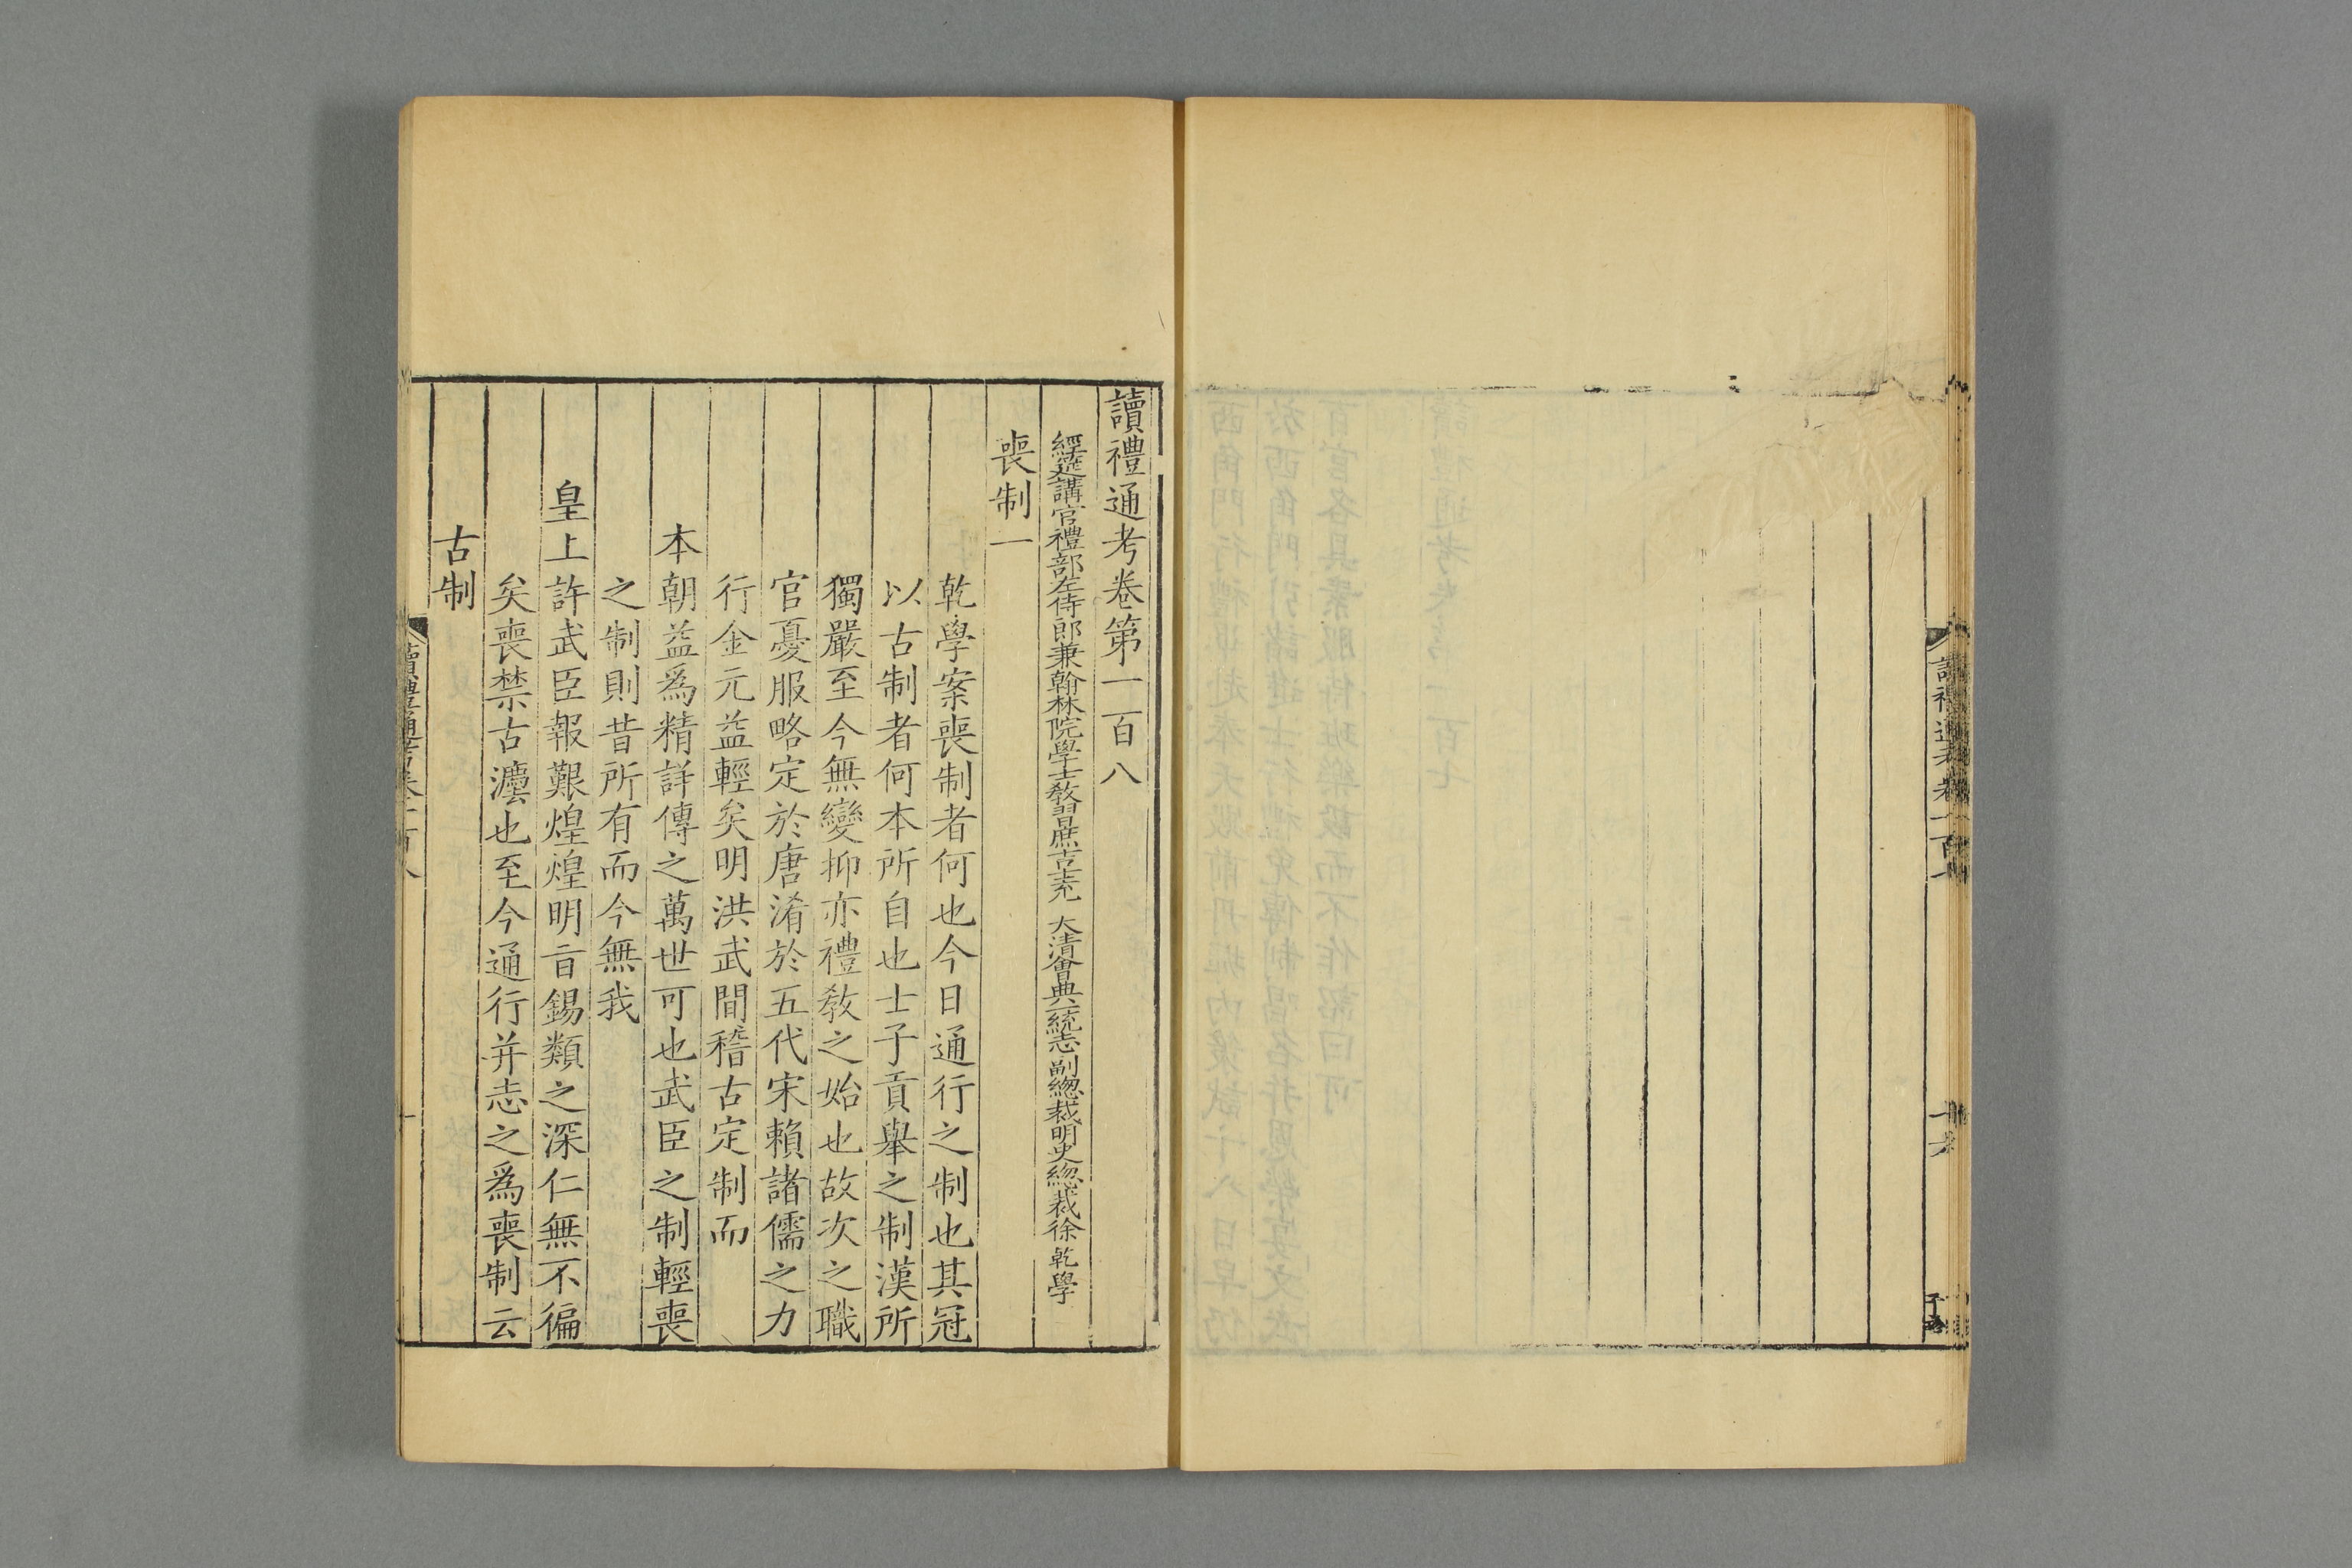 讀禮通考卷第一百八
經筵講官禮部左侍郎兼翰林院學士敎習庶吉士充 大清會典一統志副總裁明史總裁徐乾學
喪制一
乾學案喪制者何也今日通行之制也其冠
以古制者何本所自也士子貢舉之制漢所
獨嚴至今無變抑亦禮敎之始也故次之職
官憂服略定於唐淆於五代宋賴諸儒之力
行金元益輕矣明洪武間稽古定制而
本朝益爲精詳傳之萬世可也武臣之制輕喪
之制則昔所有而今無我
皇上許武臣報艱煌煌明旨錫類之深仁無不徧
矣喪禁古灋也至今通行并志之爲喪制云
古制
讀禮通考卷一百八
一